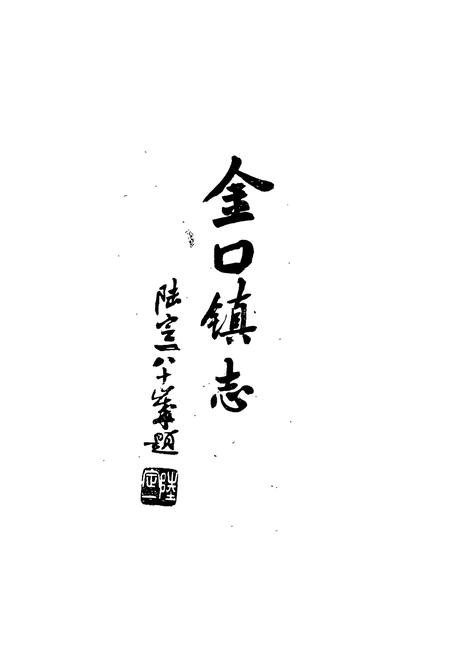 金口镇志
陆定一八十岁题
陆定一